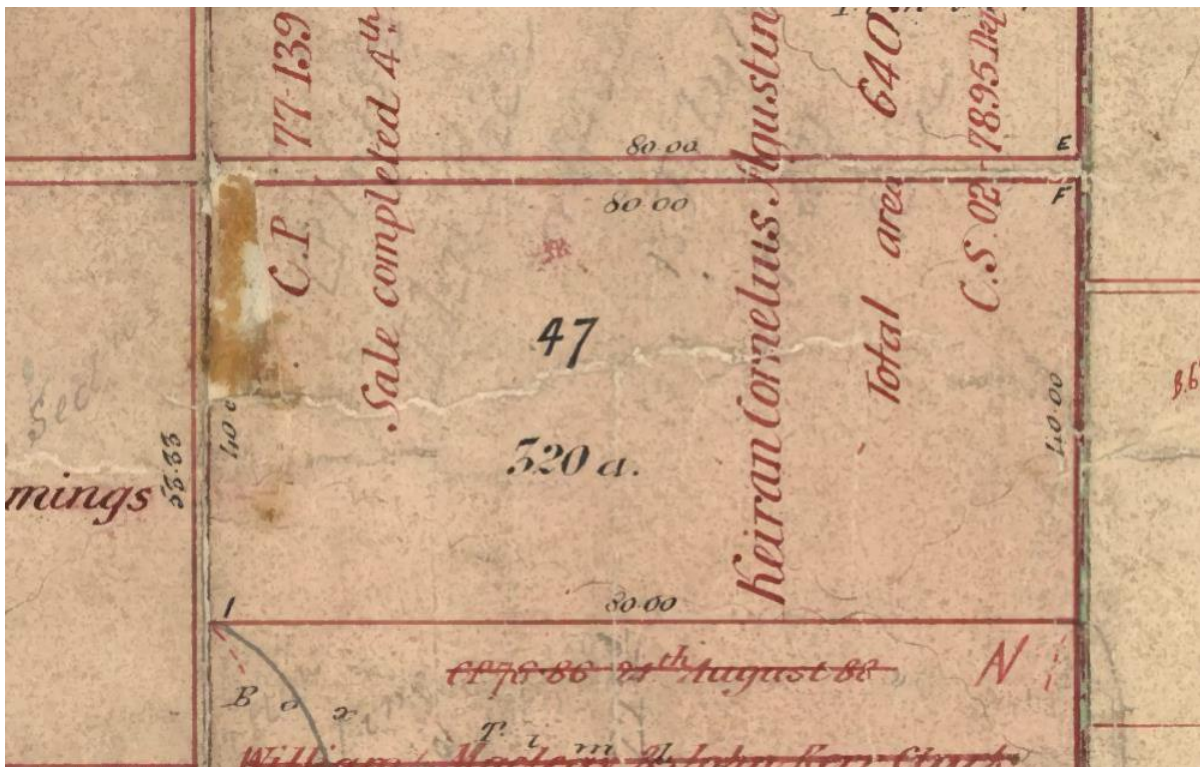 C.P. 77-139
Sale completed 4th
Keiran Cornelius Augustin
Total area 640
C.S. 02-7895 Dep
80.00
E
80.00
F
47
320 a.
40.00
Sed
mings
53.33
B.6
80.00
1
24th August 88
N
Box
Tim
William Maclean & John Kerr Clark